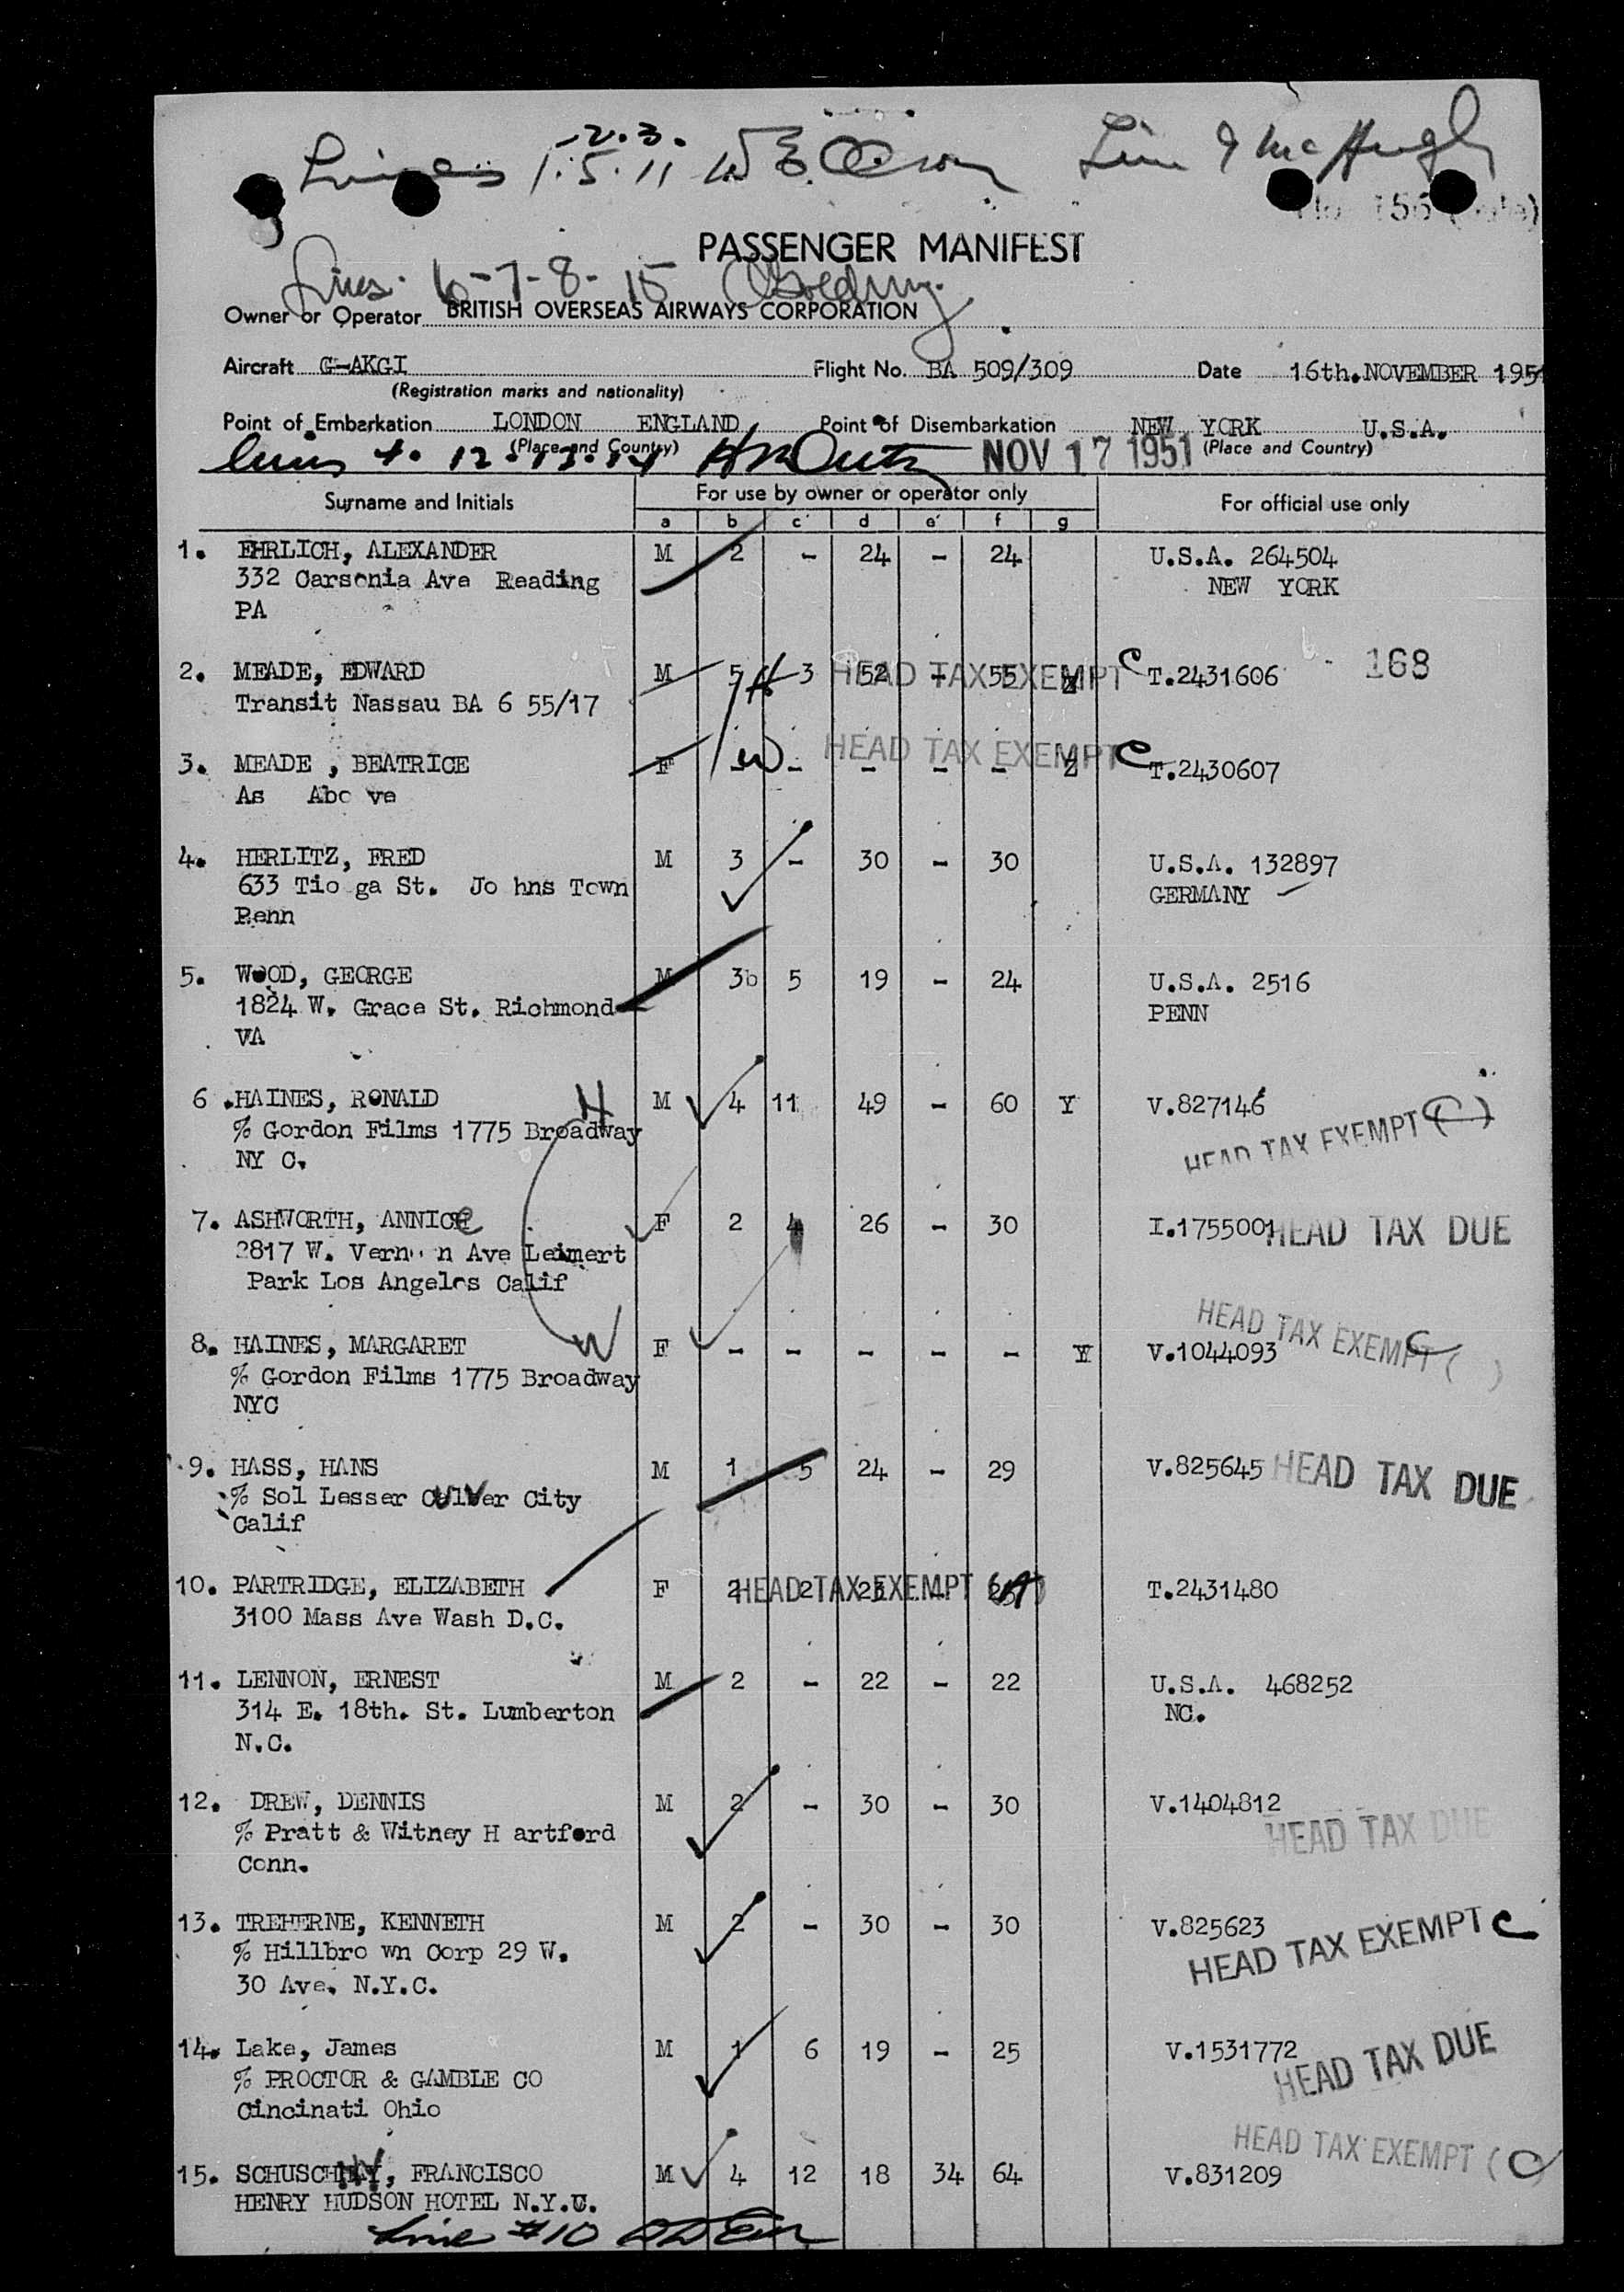 -2.3.
Lines 1.5.11 Line 9 McHugh
PASSENGER MANIFEST
Lines. 6-7-8-15
Owner or Operator BRITISH OVERSEAS AIRWAYS CORPORATION
Aircraft G-AKGI Flight No. BA 509/309 Date 16th.NOVEMBER 195
(Registration marks and nationality)
Point of Embarkation LONDON ENGLAND Point of Disembarkation NEW YORK U.S.A.
(Place and Country) NOV 17 1951 (Place and Country)
4. 12. 13. 14
Surname and Initials For use by owner or operator only For official use only
a b c d e f g
1. EHRLICH, ALEXANDER M 2 - 24 - 24 U.S.A. 264504
332 Carsonia Ave Reading NEW YORK
PA
2. MEADE, EDWARD M 5 3 52 - 55 HEAD TAX EXEMPT C T.2431606 168
Transit Nassau BA 6 55/17
HEAD TAX EXEMPT C
3. MEADE , BEATRICE F - W - - - - Z T.2430607
As Abo ve
4. HERLITZ, FRED M 3 - 30 - 30 U.S.A. 132897
633 Tio ga St. Jo hns Town GERMANY
Penn
5. WOOD, GEORGE M 3b 5 19 - 24 U.S.A. 2516
1824 W. Grace St. Richmond PENN
VA
6 .HAINES, RONALD H M 4 11 49 - 60 Y V.827146
% Gordon Films 1775 Broadway HEAD TAX EXEMPT (C)
NY C.
7. ASHWORTH, ANNICE F 2 4 26 - 30 I.1755001 HEAD TAX DUE
2817 W. Vern n Ave Leimert
Park Los Angeles Calif
HEAD TAX EXEMPT (C)
8. HAINES, MARGARET W F - - - - - Y V.1044093
% Gordon Films 1775 Broadway
NYC
9. HASS, HANS M 1 5 24 - 29 V.825645 HEAD TAX DUE
% Sol Lesser Culver City
Calif
10. PARTRIDGE, ELIZABETH F 2 2 23 - HEAD TAX EXEMPT T.2431480
3100 Mass Ave Wash D.C.
11. LENNON, ERNEST M 2 - 22 - 22 U.S.A. 468252
314 E. 18th. St. Lumberton NC.
N.C.
12. DREW, DENNIS M 2 - 30 - 30 V.1404812
% Pratt & Witney H artford HEAD TAX DUE
Conn.
13. TREHERNE, KENNETH M 2 - 30 - 30 V.825623
% Hillbro wn Corp 29 W. HEAD TAX EXEMPT C
30 Ave. N.Y.C.
14. Lake, James M 1 6 19 - 25 V.1531772
% PROCTOR & GAMBLE CO HEAD TAX DUE
Cincinati Ohio
HEAD TAX EXEMPT (C
15. , FRANCISCO M 4 12 18 34 64 V.831209
HENRY HUDSON HOTEL N.Y.C.
Line #10